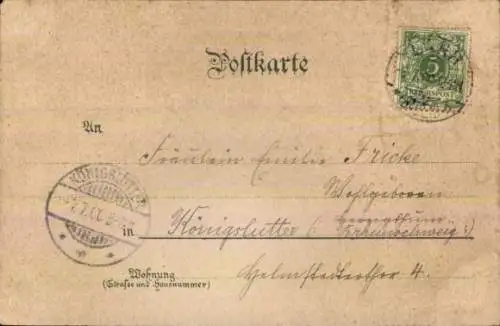 Postkarte
5
REICHSPOST
An
Fräulein Emilie Fricke
Wohlgeboren
in Königslutter (Herzogthum
Braunschweig)
Wohnung
(Strasse und Hausnummer)
Helmstedterthor 4.